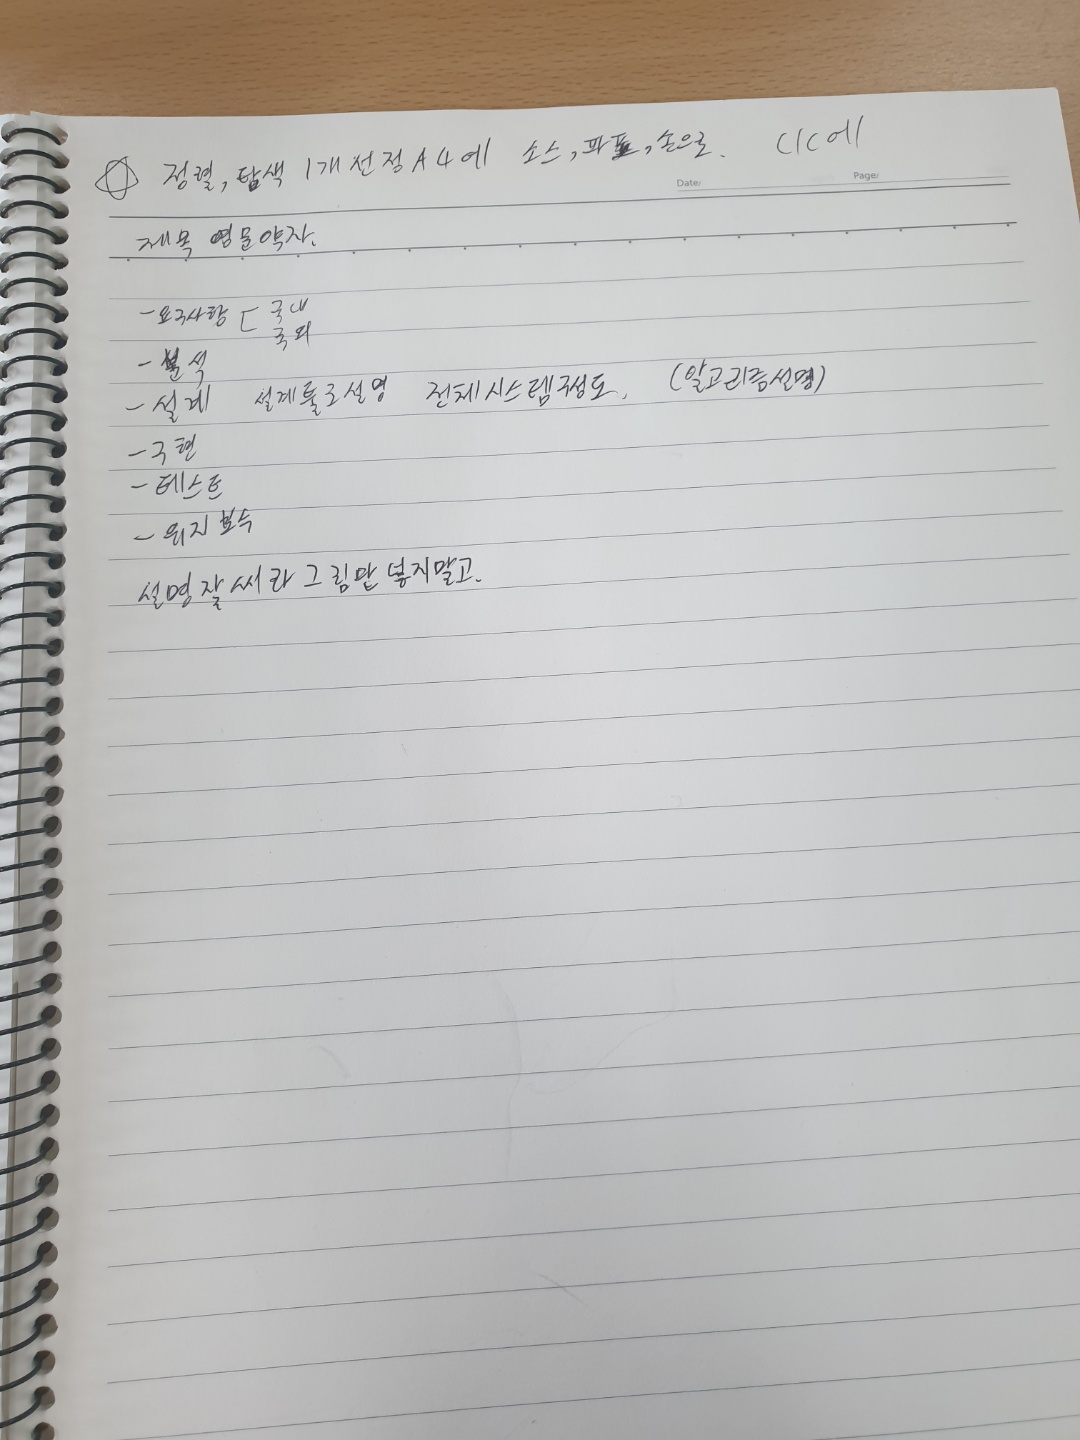 정렬, 탐색 1개 선정 A4에 소스, 파표, 손으로.
Date:
Page:
제목 영문약자.
- 요구사항 [ 국내
국외
- 분석
- 설계 설계툴로설명 전체시스템구성도. (알고리즘설명)
- 구현
- 테스트
- 유지보수
설명잘써라 그림만 넣지말고.